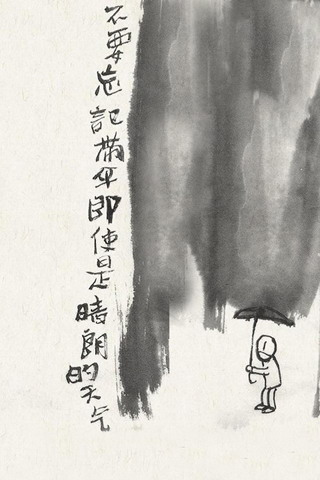 不要忘記帶伞即使是晴朗的天气